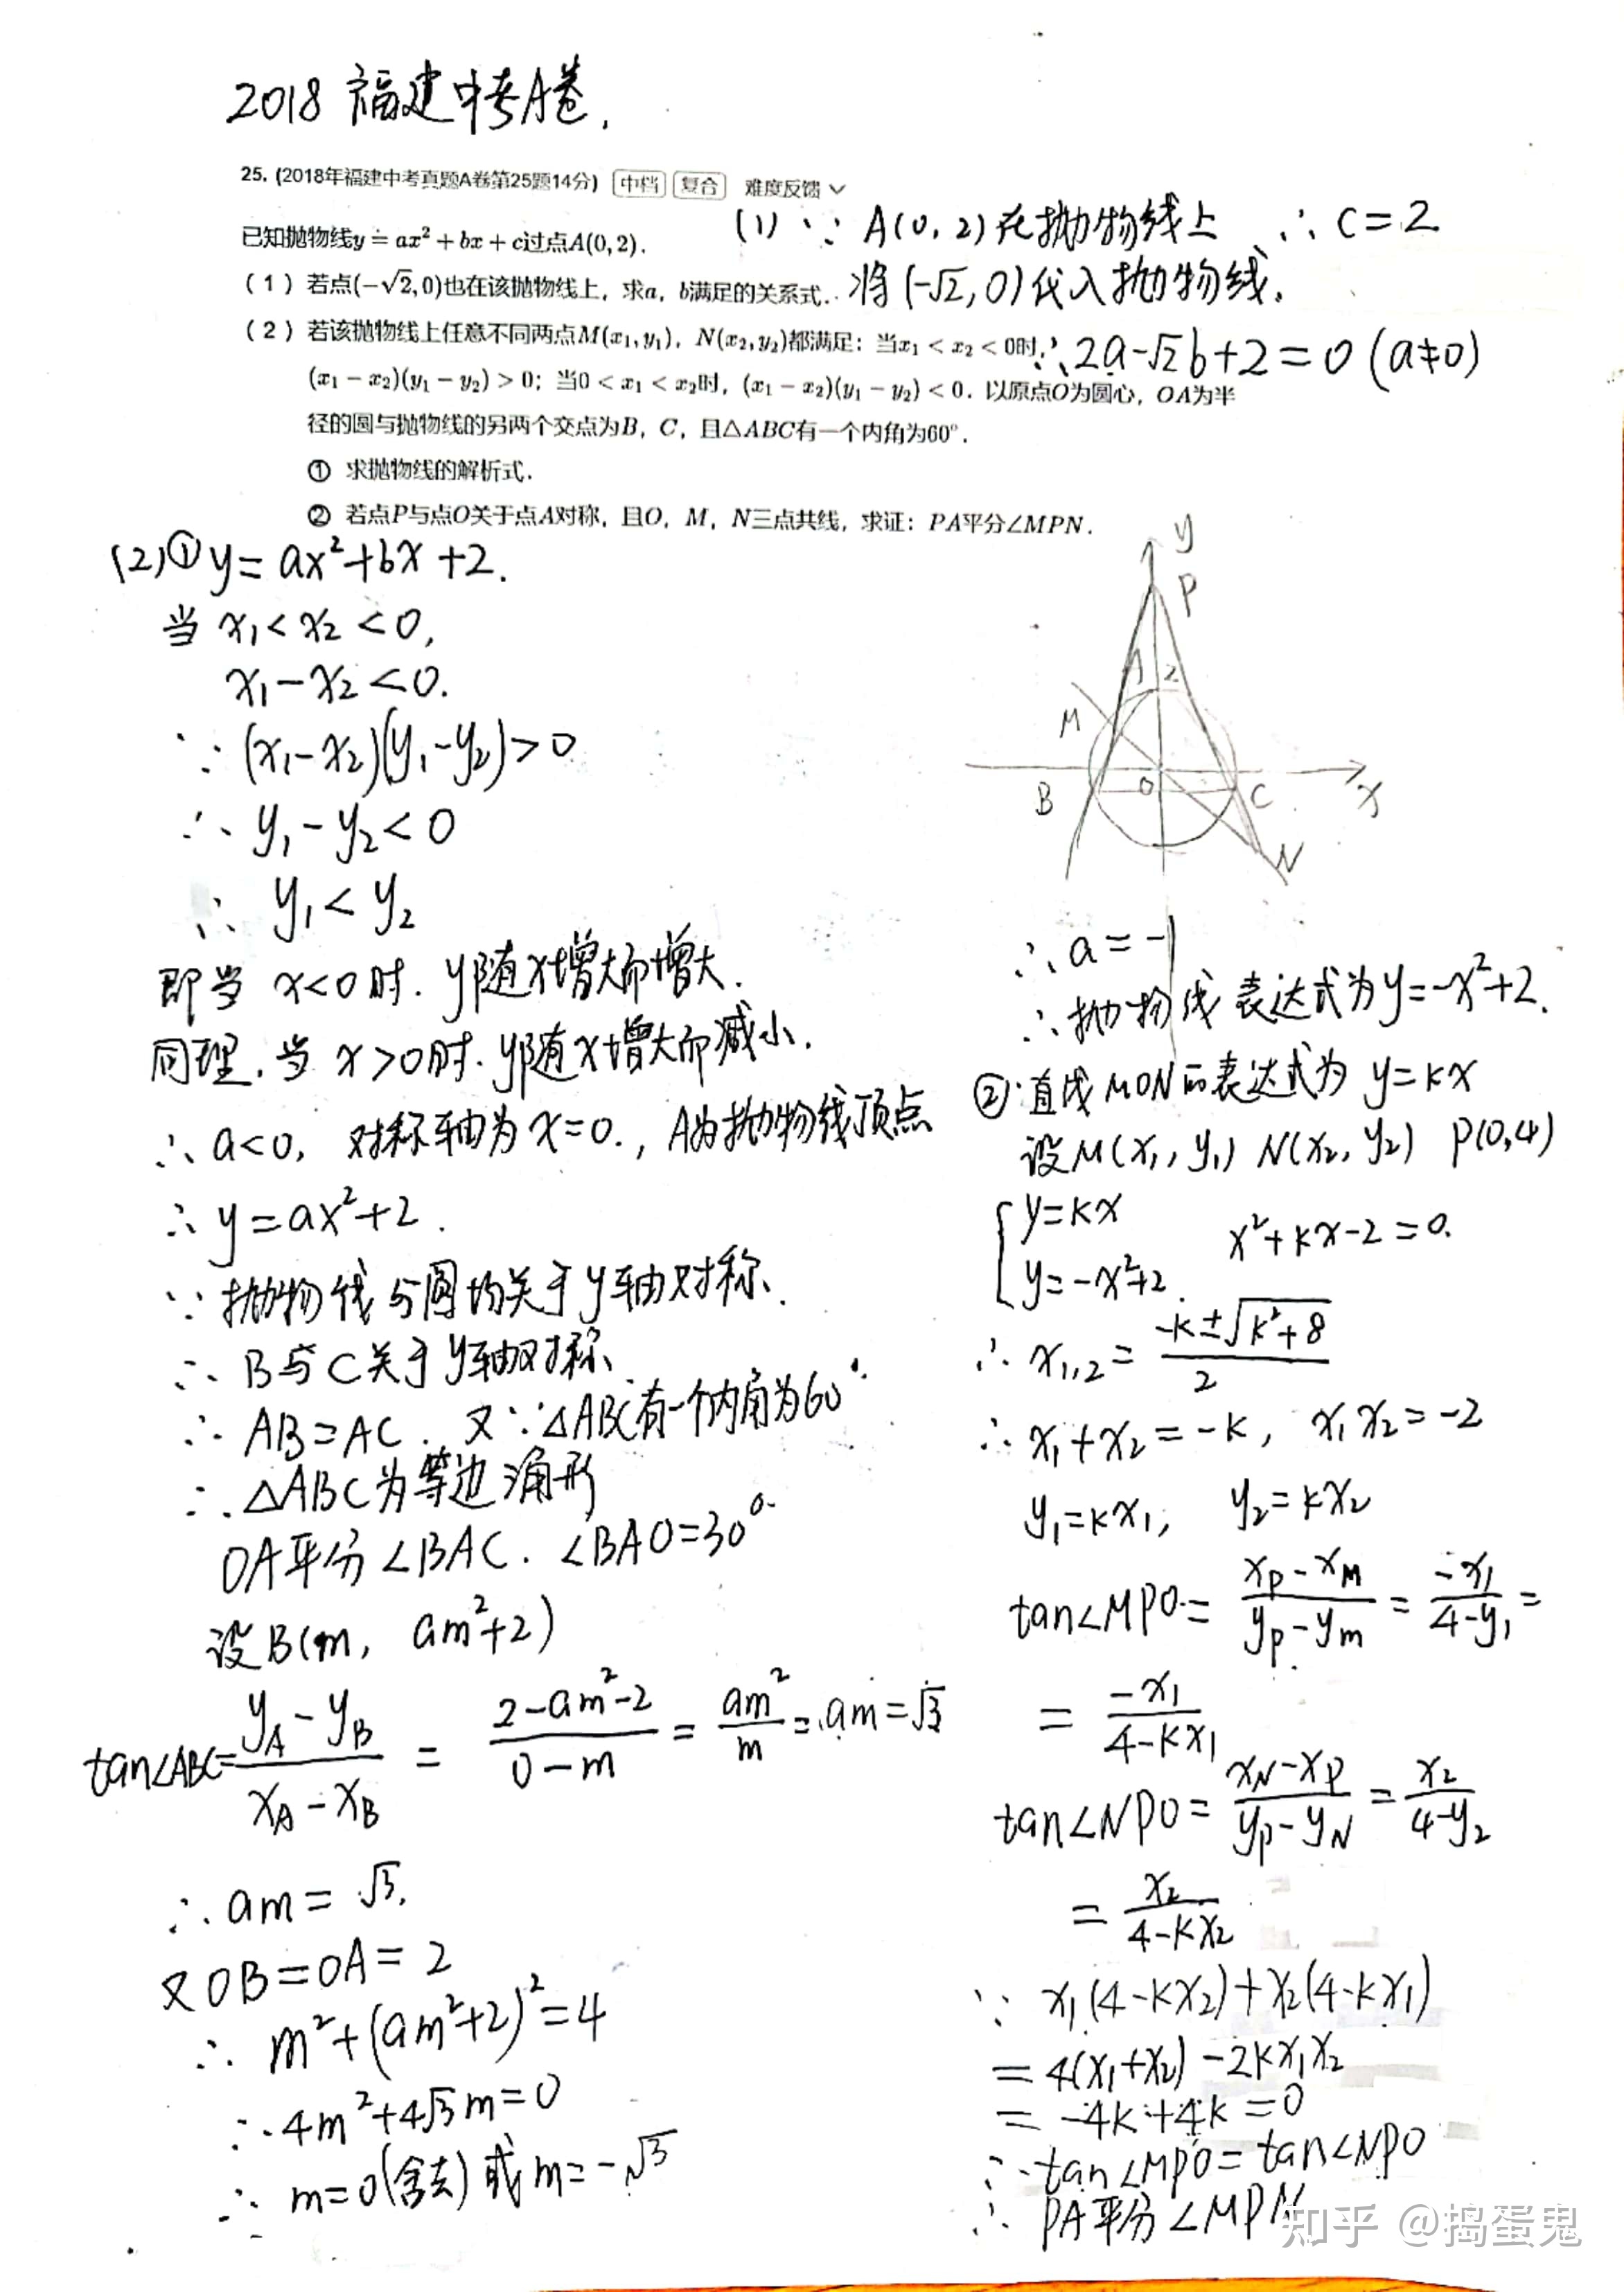 2018 福建中考A卷.
25. (2018年福建中考真题A卷第25题14分) 中档 复合 难度反馈
已知抛物线y = ax² + bx + c过点A(0, 2).
(1) ∵ A(0, 2) 在抛物线上 ∴ c = 2
(1) 若点(-√2, 0)也在该抛物线上，求a，b满足的关系式.
将 (-√2, 0) 代入抛物线.
(2) 若该抛物线上任意不同两点M(x₁, y₁)，N(x₂, y₂)都满足：当x₁ < x₂ < 0时，
∴ 2a-√2b+2=0 (a≠0)
(x₁ - x₂)(y₁ - y₂) > 0；当0 < x₁ < x₂时，(x₁ - x₂)(y₁ - y₂) < 0．以原点O为圆心，OA为半
径的圆与抛物线的另两个交点为B，C，且△ABC有一个内角为60°．
① 求抛物线的解析式．
② 若点P与点O关于点A对称，且O，M，N三点共线，求证：PA平分∠MPN．
(2)① y = ax²+bx+2.
当 x₁<x₂<0,
x₁-x₂<0.
∵ (x₁-x₂)(y₁-y₂)>0
∴ y₁-y₂<0
∴ y₁<y₂
即当 x<0时. y随x增大而增大.
同理. 当 x>0时. y随x增大而减小.
∴ a<0, 对称轴为 x=0., A为抛物线顶点
∴ y=ax²+2.
∵ 抛物线与圆均关于y轴对称.
∴ B与C关于y轴对称.
∴ AB=AC. 又∵△ABC有一个内角为60°
∴ △ABC为等边三角形
OA平分∠BAC. ∠BAO=30°
设B(m, am²+2)
tan∠ABC= (y_A-y_B)/(x_A-x_B) = (2-am²-2)/(0-m) = am²/m = am=√3
∴ am = √3.
又OB=OA=2
∴ m²+(am²+2)²=4
∴ 4m²+4√3m=0
∴ m=0(舍去) 或 m=-√3
y
P
A
2
M
B
O
C
x
N
∴ a = -1
∴ 抛物线表达式为y=-x²+2.
② 直线MON的表达式为 y=kx
设M(x₁, y₁) N(x₂, y₂) P(0,4)
{ y=kx
x²+kx-2=0.
y=-x²+2.
∴ x₁,₂ = (-k±√(k²+8))/2
∴ x₁+x₂=-k, x₁x₂=-2
y₁=kx₁, y₂=kx₂
tan∠MPO = (x_P-x_M)/(y_P-y_m) = -x₁/(4-y₁) =
= -x₁/(4-kx₁)
tan∠NPO = (x_N-x_P)/(y_P-y_N) = x₂/(4-y₂)
= x₂/(4-kx₂)
∵ x₁(4-kx₂)+x₂(4-kx₁)
= 4(x₁+x₂)-2kx₁x₂
= -4k+4k=0
∴ tan∠MPO=tan∠NPO
∴ PA平分∠MPN
知乎 @捣蛋鬼